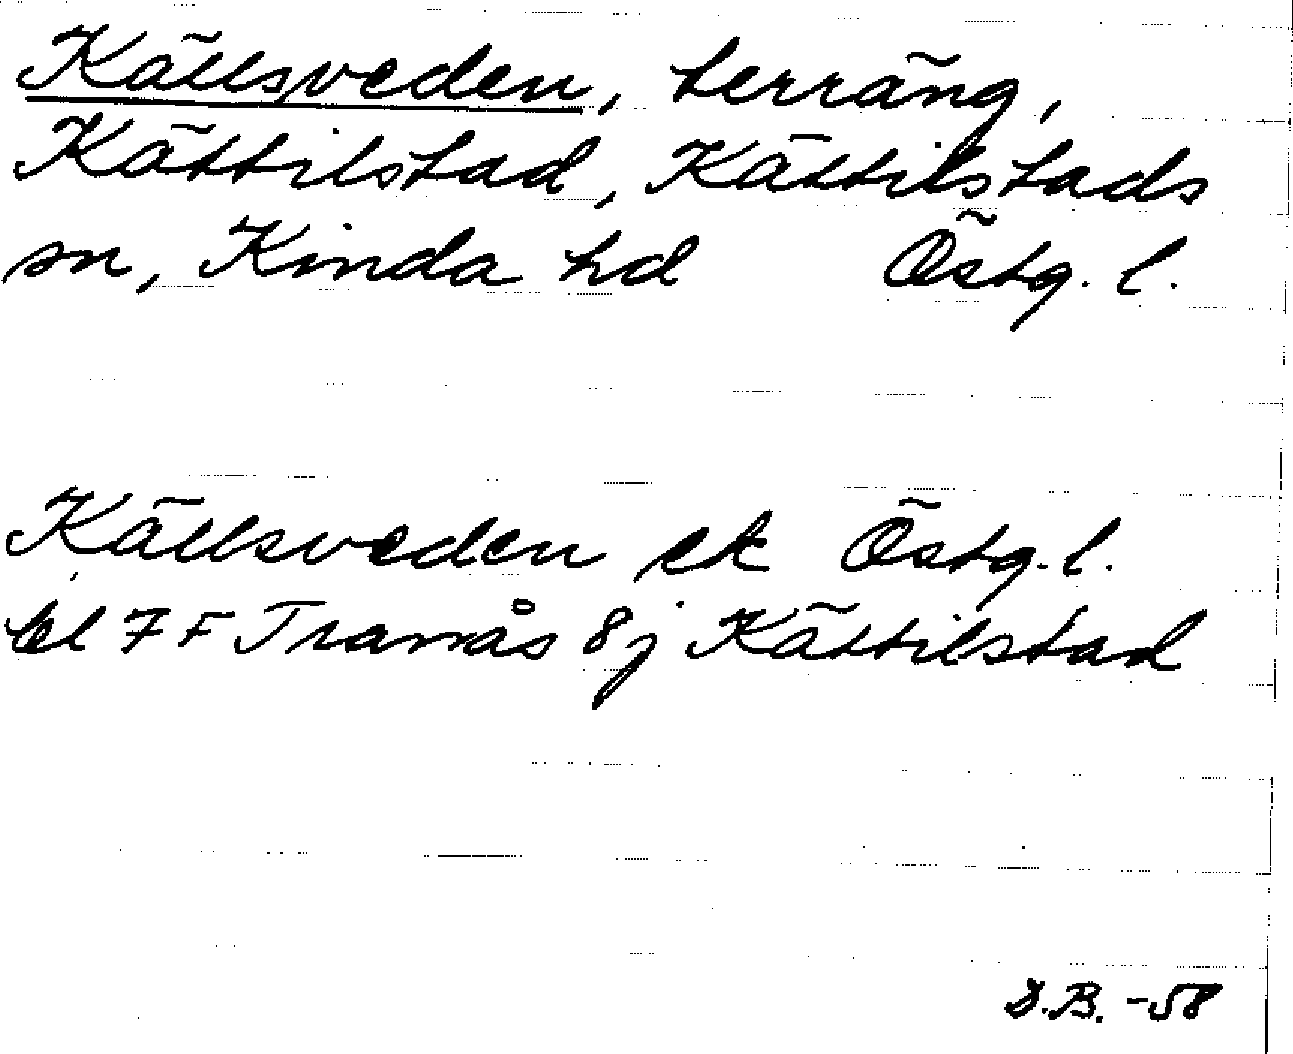 Källsveden, terräng,
Kättilstad, Kättilstads
sn, Kinda hd Östg. l.
Källsveden ek Östg. l.
bl 7 F Tranås 8j Kättilstad
B. -58